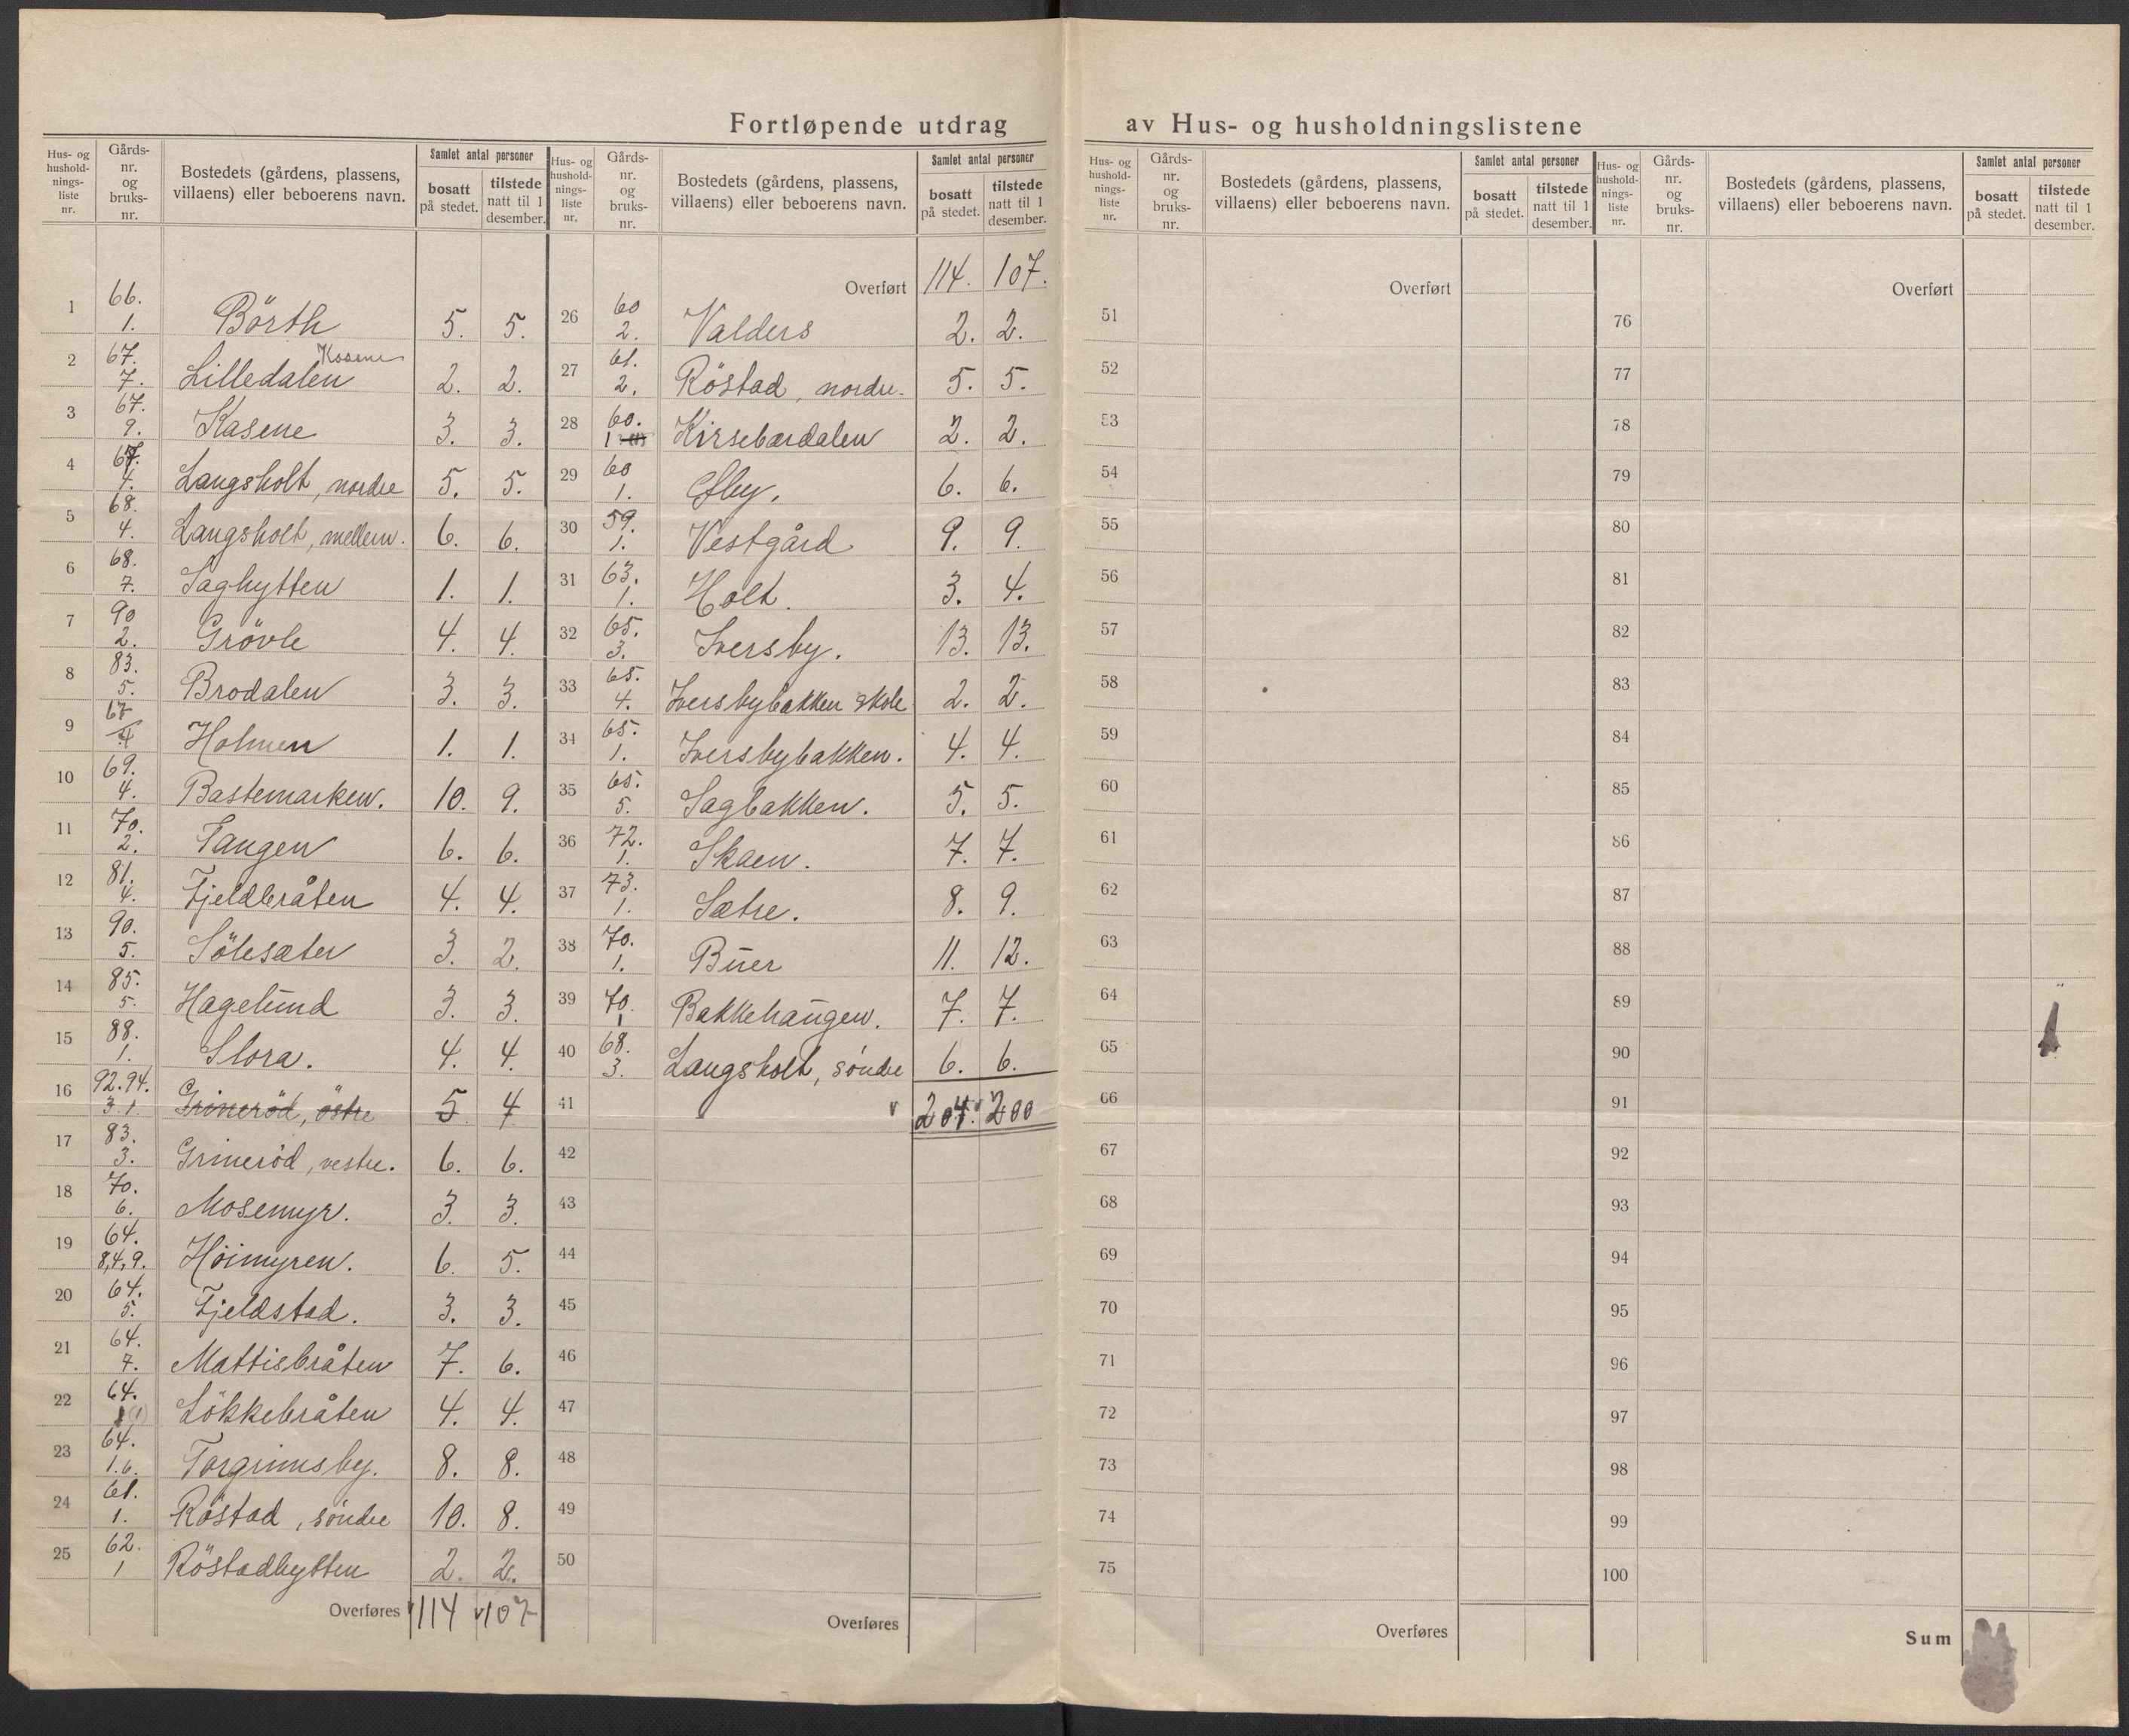 Fortløpende utdrag av Hus- og husholdningslistene
Hus- og hushold-nings-liste nr. | Gårds-nr. og bruks-nr. | Bostedets (gårdens, plassens, villaens) eller beboerens navn. | Samlet antal personer | bosatt på stedet. | tilstede natt til 1 desember.
1 66. 1. Börth 5. 5.
2 67. 7. Lilledalen Kasene 2. 2.
3 67. 9. Kasene 3. 3.
4 67. 4. Langsholt, nordre 5. 5.
5 68. 4. Langsholt, mellem. 6. 6.
6 68. 7. Saghytten 1. 1.
7 90 2. Grövle 4. 4.
8 83. 5. Brodalen 3. 3.
9 67 4 Holmen 1. 1.
10 69. 4. Bastemarken. 10. 9.
11 70. 2. Tangen 6. 6.
12 81. 4. Fjeldbråten 4. 4.
13 90. 5. Sölesæter 3. 2.
14 85. 5. Hagelund 3. 3.
15 88. 1. Slora. 4. 4.
16 92. 94. 3. 1 Grineröd, östre 5 4
17 83. 3. Grineröd, vestre. 6. 6.
18 70. 6. Mosemyr. 3. 3.
19 64. 8,4,9. Höimyren. 6. 5.
20 64. 5. Fjeldstad. 3. 3.
21 64. 7. Mattisbråten 7. 6.
22 64. 1 (1) Lökkebråten 4. 4.
23 64. 1.6. Torgrimsby. 8. 8.
24 61. 1. Röstad, söndre 10. 8.
25 62. 1 Röstadhytten 2. 2.
Overføres 114 107
Hus- og hushold-nings-liste nr. | Gårds-nr. og bruks-nr. | Bostedets (gårdens, plassens, villaens) eller beboerens navn. | Samlet antal personer | bosatt på stedet. | tilstede natt til 1 desember.
Overført 114. 107.
26 60 2. Valders 2. 2.
27 61. 2. Röstad, nordre. 5. 5.
28 60. 1 Kirsebærdalen 2. 2.
29 60 1. 6. 6.
30 59. 1. Vestgård 9. 9.
31 63. 1. Holt. 3. 4.
32 65. 3. Iversby. 13. 13.
33 65. 4. Iversbybakken skole 2. 2.
34 65. 1. Iversbybakken. 4. 4.
35 65. 5. Sagbakken. 5. 5.
36 72. 1. Skaen. 7. 7.
37 73. 1. Sætre. 8. 9.
38 70. 1. Buer 11. 12.
39 70. 1 Bakkehaugen. 7. 7.
40 68. 3. Langsholt, söndre 6. 6.
41 204. 200
42
43
44
45
46
47
48
49
50
Overføres
Hus- og hushold-nings-liste nr. | Gårds-nr. og bruks-nr. | Bostedets (gårdens, plassens, villaens) eller beboerens navn. | Samlet antal personer | bosatt på stedet. | tilstede natt til 1 desember.
Overført
51
52
53
54
55
56
57
58
59
60
61
62
63
64
65
66
67
68
69
70
71
72
73
74
75
Overføres
Hus- og hushold-nings-liste nr. | Gårds-nr. og bruks-nr. | Bostedets (gårdens, plassens, villaens) eller beboerens navn. | Samlet antal personer | bosatt på stedet. | tilstede natt til 1 desember.
Overført
76
77
78
79
80
81
82
83
84
85
86
87
88
89
90
91
92
93
94
95
96
97
98
99
100
Sum